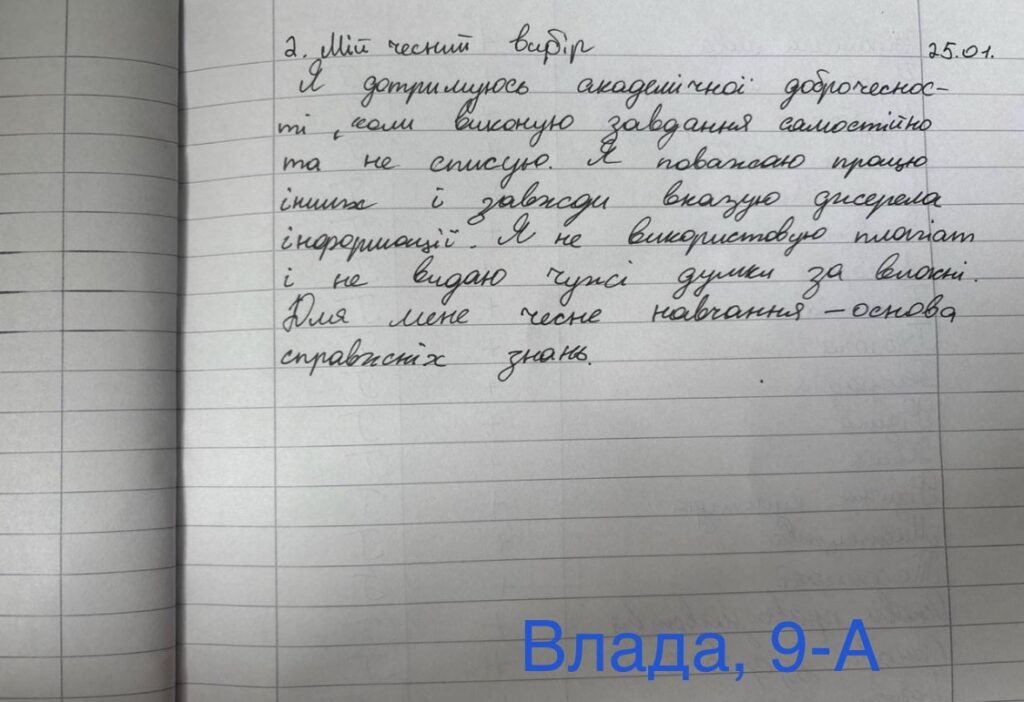 2. Мій чесний вибір 25.01.
Я дотримуюсь академічної доброчеснос-
ті, коли виконую завдання самостійно
та не списую. Я поважаю працю
інших і завжди вказую джерела
інформації. Я не використовую плагіат
і не видаю чужі думки за власні.
Для мене чесне навчання – основа
справжніх знань.
Влада, 9-А